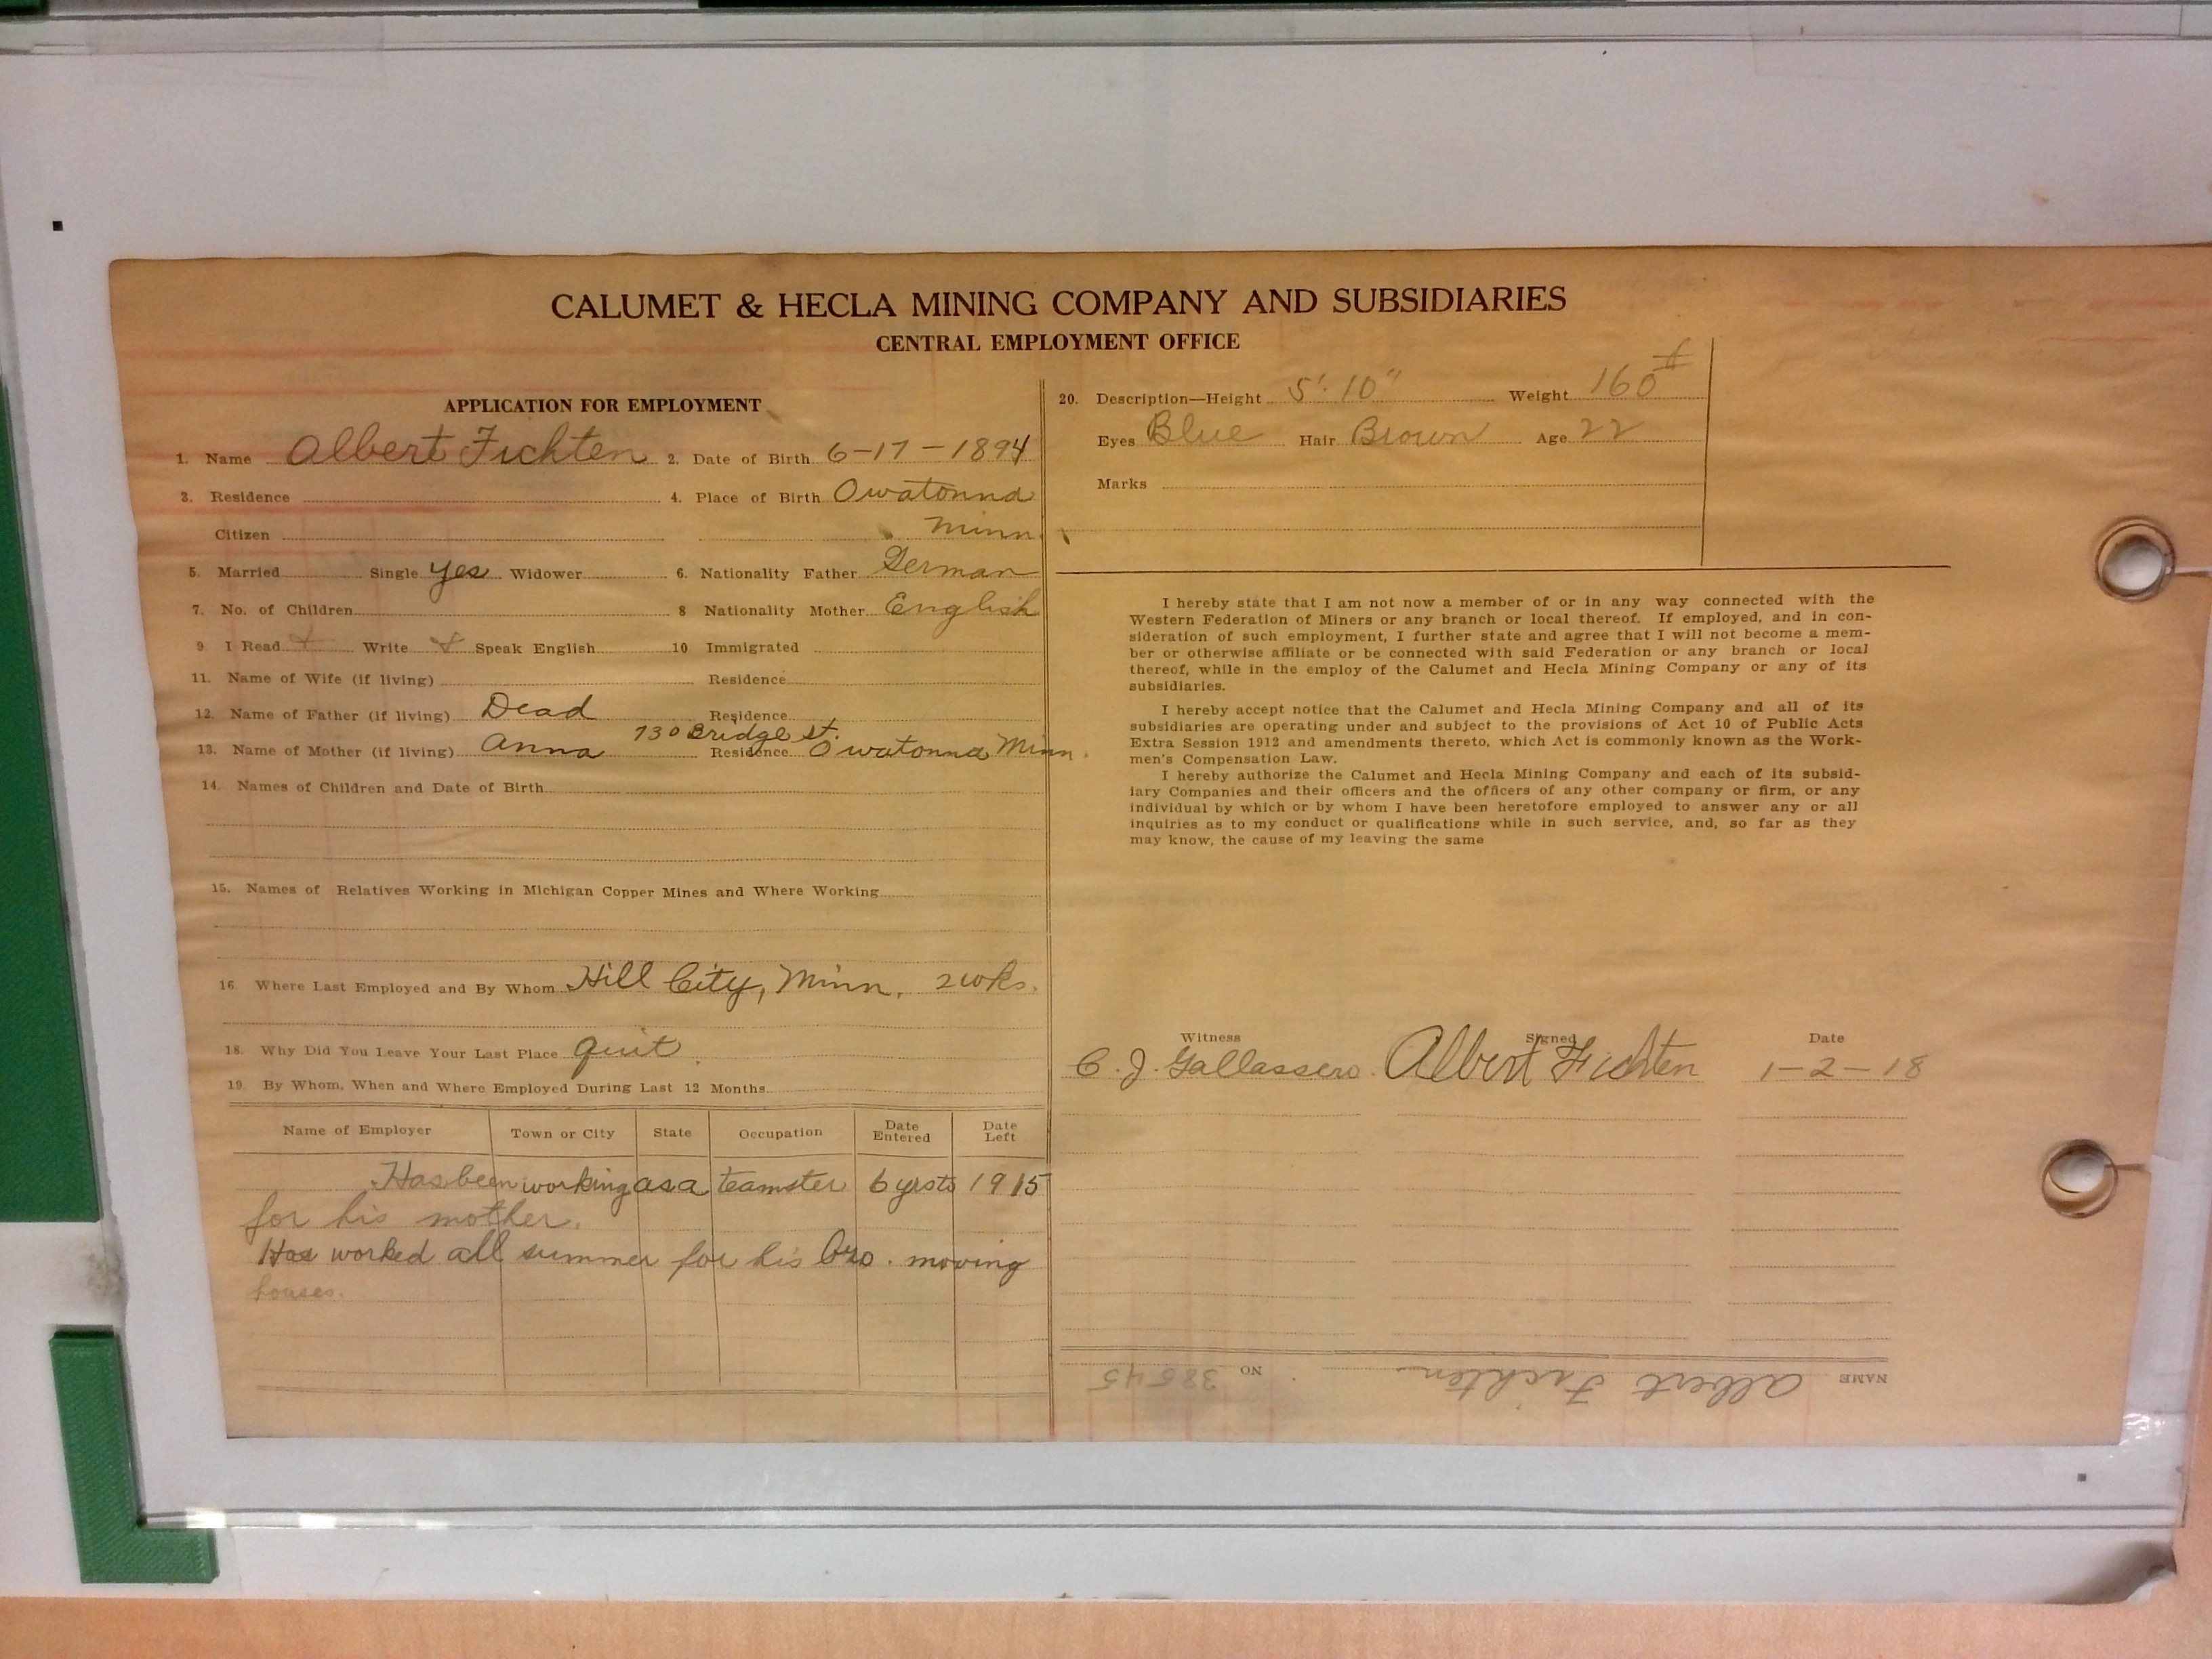 CALUMET & HECLA MINING COMPANY AND SUBSIDIARIES
CENTRAL EMPLOYMENT OFFICE
APPLICATION FOR EMPLOYMENT
1. Name Albert Fichten 2. Date of Birth 6-17-1894
3. Residence 4. Place of Birth Owatonna
Citizen Minn.
5. Married Single yes Widower 6. Nationality Father German
7. No. of Children 8 Nationality Mother English
9. I Read Write Speak English 10 Immigrated
11. Name of Wife (if living) Residence
12. Name of Father (if living) Dead Residence
730 Bridge st.
13. Name of Mother (if living) Anna Residence Owatonna Minn.
14. Names of Children and Date of Birth
15. Names of Relatives Working in Michigan Copper Mines and Where Working
16. Where Last Employed and By Whom Hill City, Minn. 2 wks.
18. Why Did You Leave Your Last Place quit.
19. By Whom, When and Where Employed During Last 12 Months
Name of Employer Town or City State Occupation Date Entered Date Left
Has been working as a teamster 6 yrs to 1915
for his mother.
Has worked all summer for his bro. moving
houses.
20. Description—Height 5'. 10" Weight 160#
Eyes Blue Hair Brown Age 22
Marks
I hereby state that I am not now a member of or in any way connected with the
Western Federation of Miners or any branch or local thereof. If employed, and in con-
sideration of such employment, I further state and agree that I will not become a mem-
ber or otherwise affiliate or be connected with said Federation or any branch or local
thereof, while in the employ of the Calumet and Hecla Mining Company or any of its
subsidiaries.
I hereby accept notice that the Calumet and Hecla Mining Company and all of its
subsidiaries are operating under and subject to the provisions of Act 10 of Public Acts
Extra Session 1912 and amendments thereto, which Act is commonly known as the Work-
men's Compensation Law.
I hereby authorize the Calumet and Hecla Mining Company and each of its subsid-
iary Companies and their officers and the officers of any other company or firm, or any
individual by which or by whom I have been heretofore employed to answer any or all
inquiries as to my conduct or qualifications while in such service, and, so far as they
may know, the cause of my leaving the same
Witness Signed Date
C. J. Gallassero. Albert Fichten 1-2-18
NAME Albert Fichten NO 38545